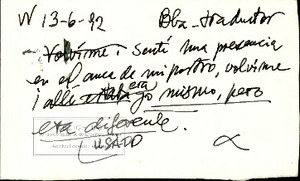 N 13-6-92 Bba - traductor
- Volvíme : sentí una presencia
en el ance de mi postro, volvíme
¡ allí estaba era yo mismo, pero
era diferente.
USADO